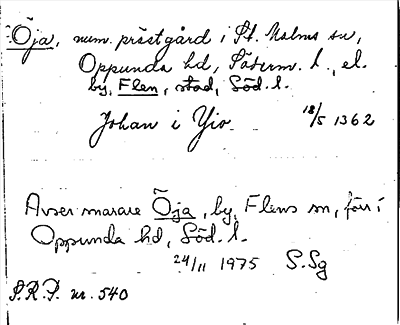 Öja, num. prästgård i St. Malms sn,
Oppunda hd, Söderm. l., el.
by, Flen, stad, Söd. l.
Johan i Yio 18/5 1362
Avser snarare Öja, by, Flens sn, förr i
Oppunda hd, Söd. l.
24/11 1975 S.Sg
S.R.P. nr. 540